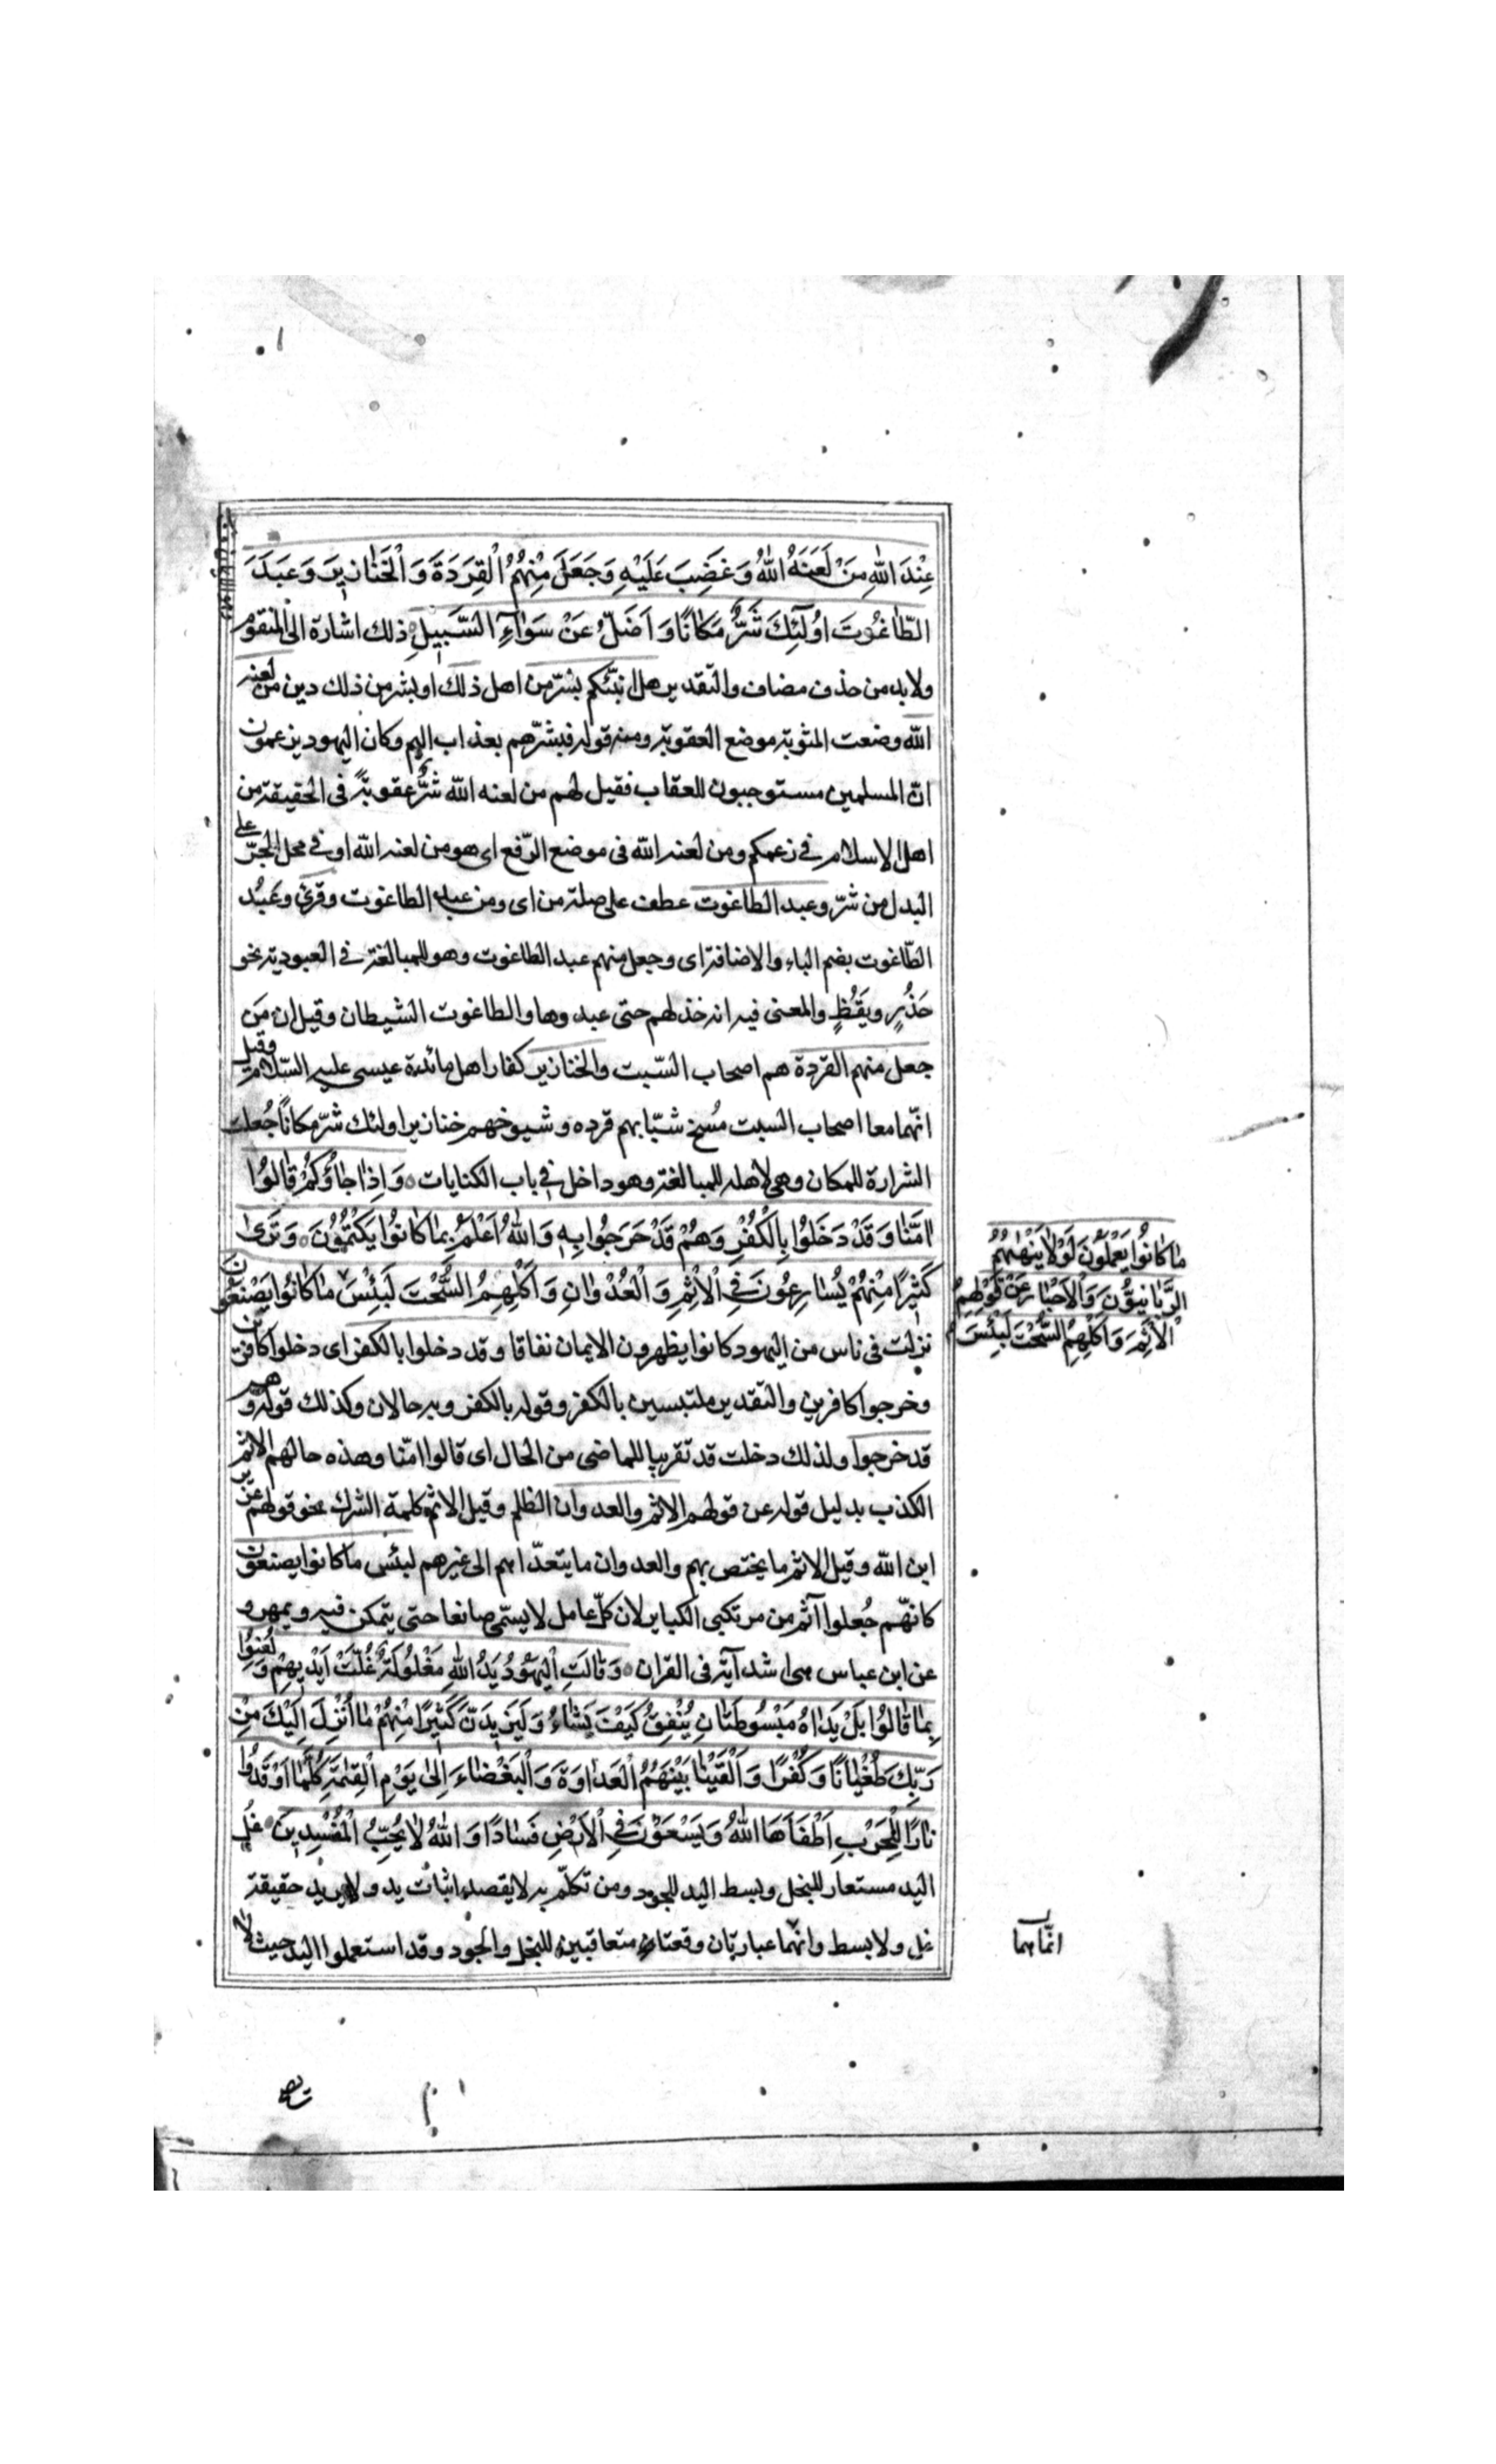 عِنْدَ اللهِ مِنْ لَعَنَهُ اللهُ وَغَضِبَ عَلَيْهِ وَجَعَلَ مِنْهُمُ الْقِرَدَةَ وَالْخَنَازِيرَ وَعَبَدَ
الطَّاغُوتَ اُولٰٓئِكَ شَرٌّ مَكَانًا وَاَضَلُّ عَنْ سَوَآءِ السَّبِيلِ ذلك اشارة الى المنقوم
ولابد من حذف مضاف والتقدير هل انبّئكم بشرّ من اهل ذلك او بشر من ذلك دين من لعنه
الله وضعت المثوبة موضع العقوبة ومنه قوله فبشّرهم بعذاب اليم وكان اليهود يزعمون
انّ المسلمين مستوجبون للعقاب فقيل لهم من لعنه الله شرُّ عقوبةً فى الحقيقة من
اهل الاسلام فى زعمكم ومن لعنه الله فى موضع الرّفع اى هو من لعنه الله او فى محل الجرّ على
البدل من شرّ وعبد الطاغوت عطف على صلة من اى ومن عبد الطاغوت وقرئ وعَبُد
الطّاغوت بضم الباء والاضافة اى وجعل منهم عبد الطاغوت وهو للمبالغة فى العبودية نحو
حَذُرٍ ويَقُظٍ والمعنى فيه انه خذلهم حتى عبدوها والطاغوت الشيطان وقيل ان مَن
جعل منهم القردة هم اصحاب السّبت والخنازير كفار اهل مائدة عيسى عليه السّلام وقيل
انّهما معا اصحاب السبت مُسِخ شبّابهم قرده وشيوخهم خنازير اولئك شرّ مكانًا جُعلت
الشرارة للمكان وهى لاهله للمبالغة وهو داخل فى باب الكنايات ٥ وَاِذَا جَاؤُكُمْ قَالُوا
اٰمَنَّا وَقَدْ دَخَلُوا بِالْكُفْرِ وَهُمْ قَدْ خَرَجُوا بِهِ وَاللهُ اَعْلَمُ بِمَا كَانُوا يَكْتُمُونَ ٥ وَتَرىٰ
كَثِيرًا مِنْهُمْ يُسَارِعُونَ فِى الْاِثْمِ وَالْعُدْوَانِ وَاَكْلِهِمُ السُّحْتَ لَبِئْسَ مَا كَانُوا يَصْنَعُونَ
مَا كَانُوا يَعْمَلُونَ لَوْلَا يَنْهٰىهُمُ
الرَّبَّانِيُّونَ وَالْاَحْبَارُ عَنْ قَوْلِهِمُ
الْاِثْمَ وَاَكْلِهِمُ السُّحْتَ لَبِئْسَ
نزلت فى ناس من اليهود كانوا يظهرون الايمان نفاقا وقد دخلوا بالكفر اى دخلوا كافرين
وخرجوا كافرين والتقدير ملتبسين بالكفر وقوله بالكفر وبه حالان وكذلك قوله وهم
قد خرجوا ولذلك دخلت قد تقريبا للماضى من الحال اى قالوا امنّا وهذه حالهم الاثم
الكذب بدليل قوله عن قولهم الاثم والعدوان الظلم وقيل الاثم كلمة الشرك نحو قولهم عزير
ابن الله وقيل الاثم ما يختص بهم والعدوان ما يتعدّاهم الى غيرهم لبئس ما كانوا يصنعون
كانهّم جُعلوا آثم من مرتكبى الكباير لان كلّ عامل لا يسمّى صانعا حتى يتمكن فيه ويمهر و
عن ابن عباس هى اشد آية فى القران ٥ وَقَالَتِ الْيَهُودُ يَدُ اللهِ مَغْلُولَةٌ غُلَّتْ اَيْدِيهِمْ وَلُعِنُوا
بِمَا قَالُوا بَلْ يَدَاهُ مَبْسُوطَتَانِ يُنْفِقُ كَيْفَ يَشَاءُ وَلَيَزِيدَنَّ كَثِيرًا مِنْهُمْ مَا اُنْزِلَ اِلَيْكَ مِنْ
رَبِّكَ طُغْيَانًا وَكُفْرًا وَاَلْقَيْنَا بَيْنَهُمُ الْعَدَاوَةَ وَالْبَغْضَاءَ اِلىٰ يَوْمِ الْقِيٰمَةِ كُلَّمَا اَوْقَدُوا
نَارًا لِلْحَرْبِ اَطْفَاَهَا اللهُ وَيَسْعَوْنَ فِى الْاَرْضِ فَسَادًا وَاللهُ لَا يُحِبُّ الْمُفْسِدِينَ ٥ غل
اليد مستعار للبخل وبسط اليد للجود ومن تكلّم به لا يقصد اثبات يد ولا يريد حقيقة
غل ولا بسط وانّهما عبارتان وقعتا متعاقبين للبخل والجود وقد استعملوا اليد حيث لا
انّماهما